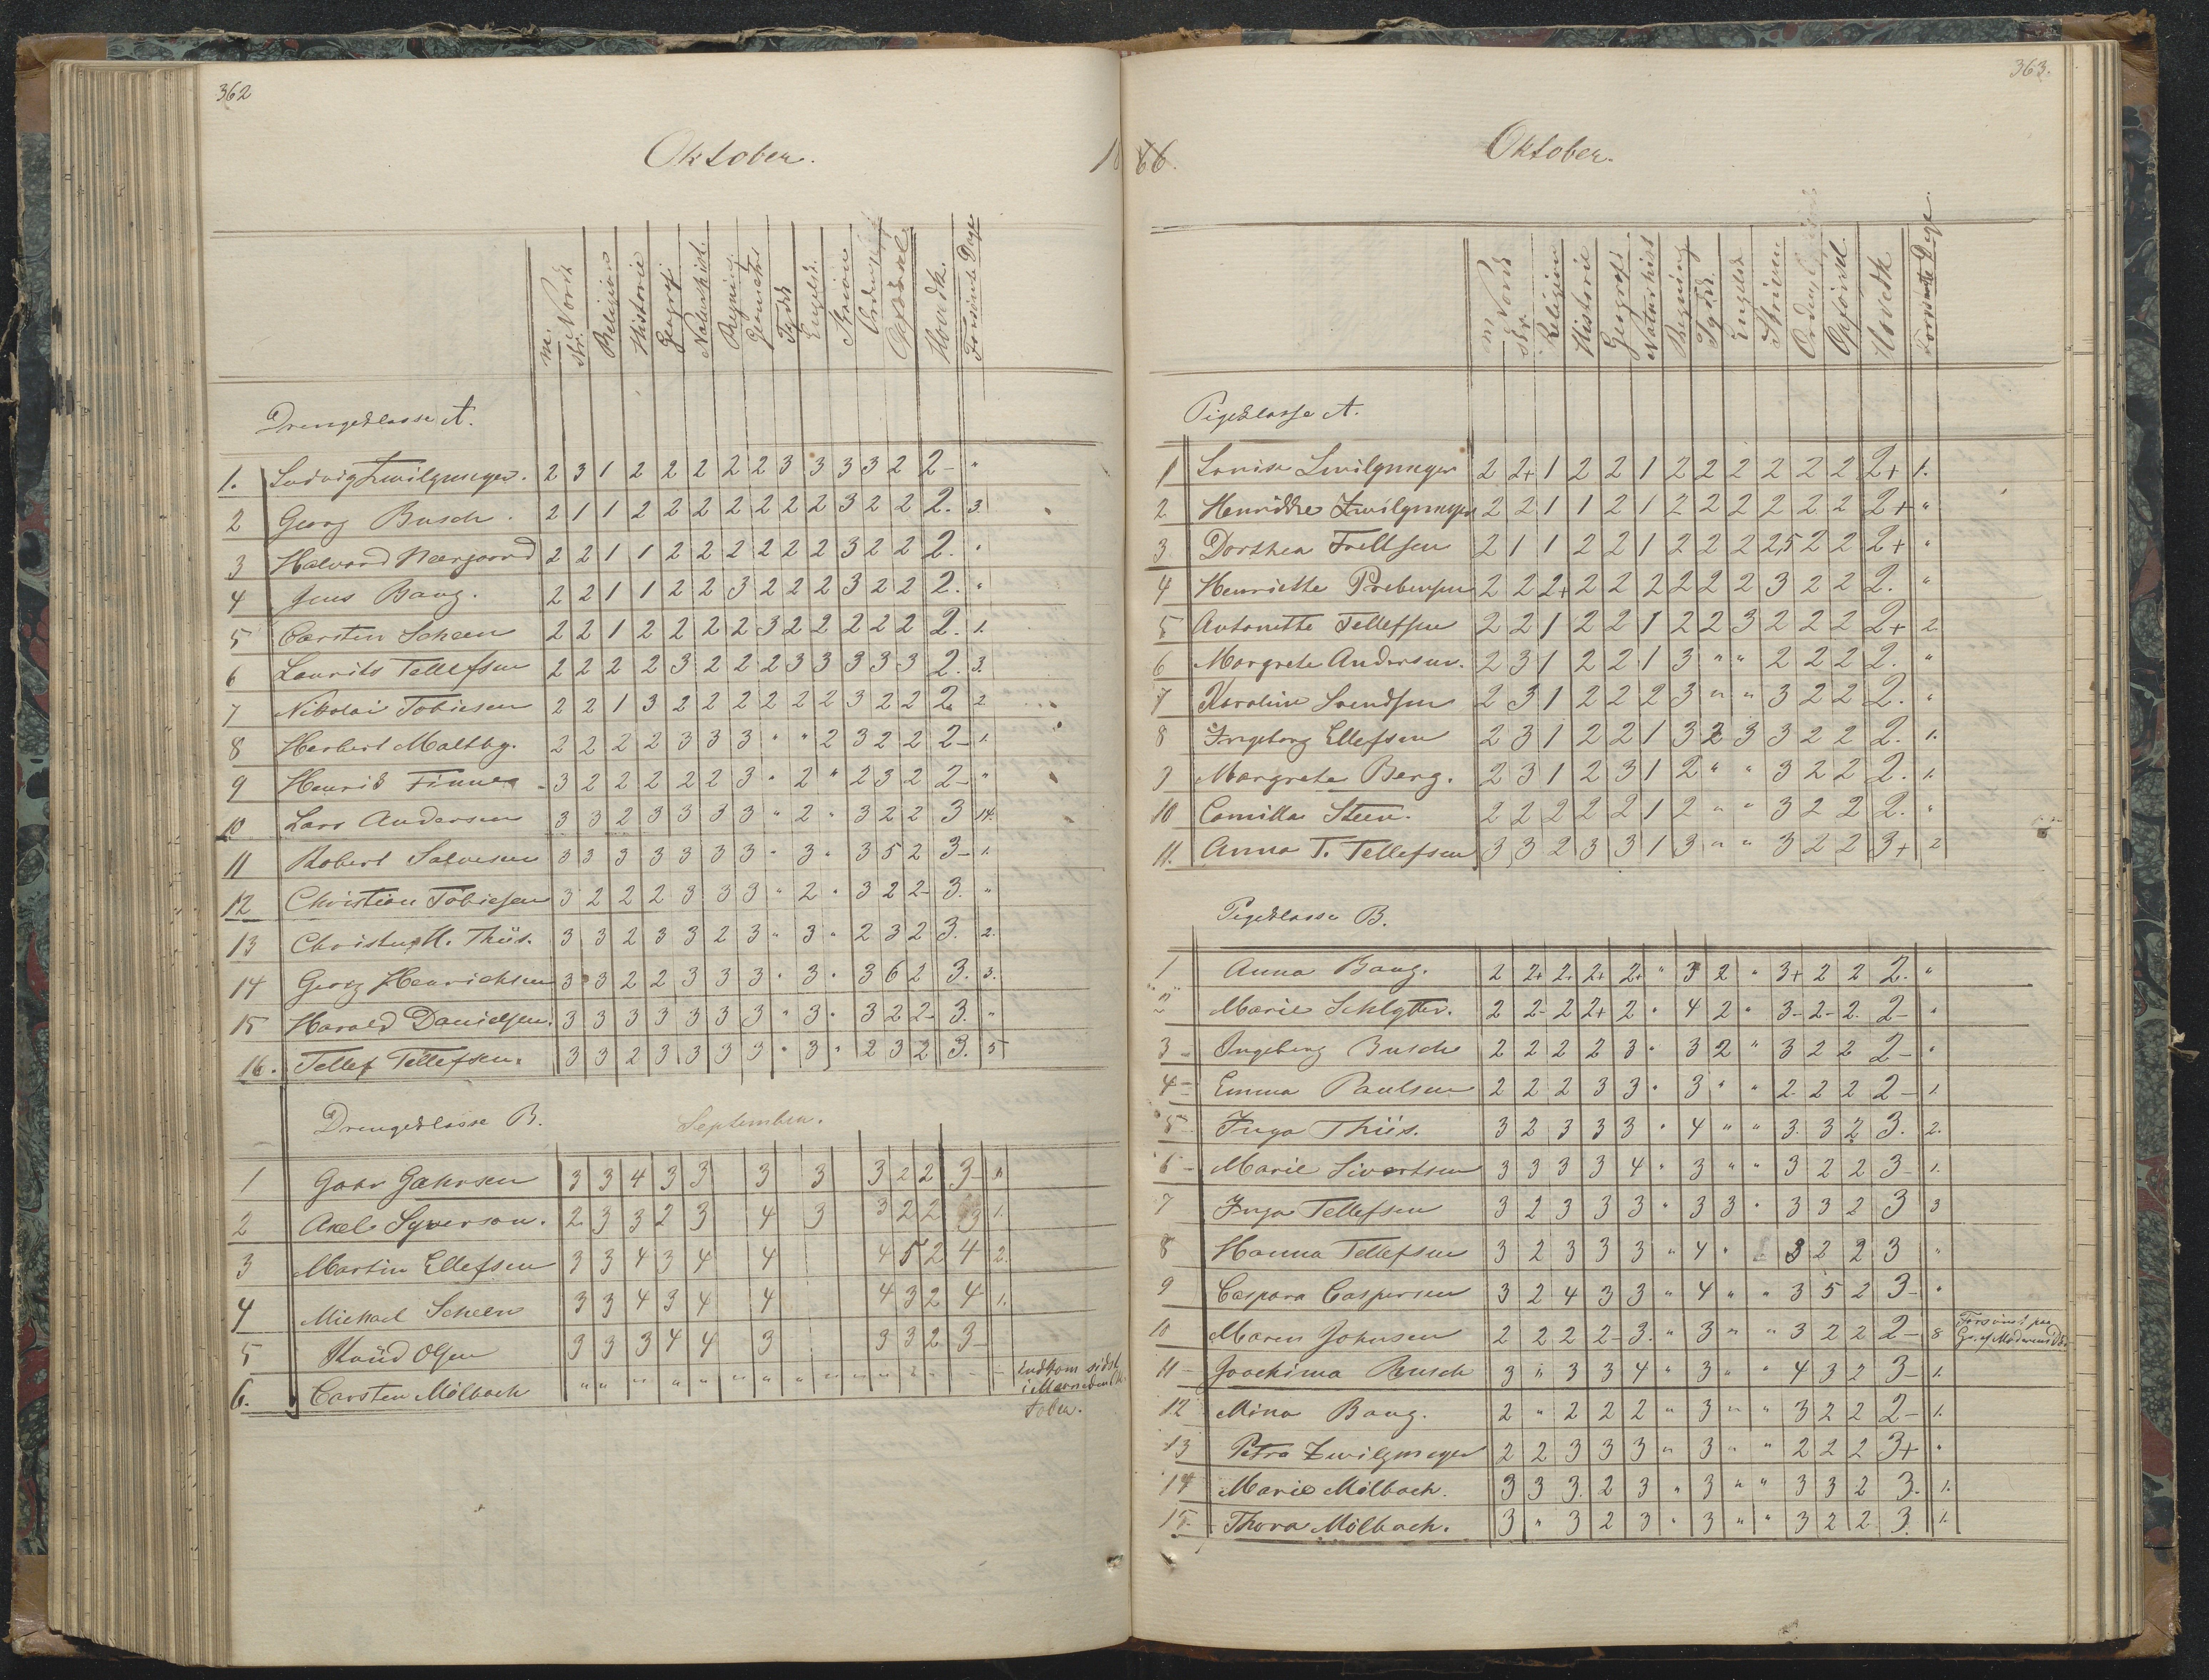 362
Oktober. 18
m. Norsk
skr. Norsk
Religion
Historie
Geografi
Naturhist.
Regning
Geometri
Tydsk
Engelsk
Skrivn
Orden
Opførsel
Hovedk.
Forsømte Dage
Drengeklasse A.
1. Ludvig Zwilgmeyer. 2 3 1 2 2 2 2 2 3 3 3 3 2 2- "
2 Georg Busch. 2 1 1 2 2 2 2 2 2 2 3 2 2 2. 3
3 Halvard Neergaard 2 2 1 1 2 2 2 2 2 2 3 2 2 2. "
4 Jens Bang. 2 2 1 1 2 2 3 2 2 2 3 2 2 2. "
5 Carsten Scheen 2 2 1 2 2 2 2 3 2 2 2 2 2 2. 1.
6 Laurits Tellefsen 2 2 2 2 3 2 2 2 3 3 3 3 3 2. 3.
7 Nikolai Tobiesen 2 2 1 3 2 2 2 2 2 2 3 2 2 2. 2
8 Herbert Maltby. 2 2 2 2 3 3 3 " " 2 3 2 2 2- 1.
9 Henrik Finne 3 2 2 2 2 2 3 " 2 " 2 3 2 2- "
10 Lars Andersen 3 3 2 3 3 3 3 " 2 " 3 2 2 3 14.
11 Robert Salvesen 3 3 3 3 3 3 3 " 3 " 3 5 2 3- 1.
12 Christian Tobiesen 3 2 2 2 3 3 3 " 2 " 3 2 2- 3. "
13 Christian H. Thiis. 3 3 2 3 3 2 3 " 3 " 2 3 2 3. 2.
14 Georg Henrichsen 3 3 2 2 3 3 3 " 3 " 3 6 2 3. 3.
15 Harald Danielsen. 3 3 3 3 3 3 3 " 3 " 3 2 2- 3. "
16. Tellef Tellefsen. 3 3 2 3 3 3 3 " 3 " 2 3 2 3. 5
Drengeklasse B. September.
1 Gahr Gahrsen 3 3 4 3 3 3 3 3 2 2 3- 1.
2 Axel Syverson. 2 3 3 2 3 4 3 3 2 2 3 1.
3 Martin Ellefsen 3 3 4 3 4 4 4 5 2 4 2.
4 Michael Scheen 3 3 4 3 4 4 4 3 2 4 1.
5 Knüd Olsen 3 3 3 4 4 3 3 3 2 3-
6. Carsten Mölbach " " " " " " " " " " " " "
Indkom sidst
i Maaneden Ok-
tober.
363.
66. Oktober.
m Norsk
skr.
Religion
Historie
Geografi
Naturhist
Regning
Tydsk
Engelsk
Skrivn
Orden
Opførsel
Hovedk
Forsømte Dage
Pigeklasse A.
1 Louise Zwilgmeyer 2 2+ 1 2 2 1 2 2 2 2 2 2 2+ 1.
2 Henrikke Zwilgmeyer 2 2 1 1 2 1 2 2 2 2 2 2 2+ "
3 Dorthea Trellsen 2 1 1 2 2 1 2 2 2 2,5 2 2 2+ "
4 Henriette Prebensen 2 2 2+ 2 2 2 2 2 2 3 2 2 2. "
5 Antonette Tellefsen 2 2 1 2 2 1 2 2 3 2 2 2 2+ 2
6 Margrete Andersen. 2 3 1 2 2 1 3 " " 2 2 2 2. "
7 Karoline Svendsen 2 3 1 2 2 2 3 " " 3 2 2 2. "
8 Ingeborg Ellefsen 2 3 1 2 2 1 3 2 3 3 2 2 2. 1.
9 Margrete Berg. 2 3 1 2 3 1 2 " " 3 2 2 2. 1.
10 Camilla Steen. 2 2 2 2 2 1 2 " " 3 2 2 2. "
11. Anna T. Tellefsen 3 3 2 3 3 1 3 " " 3 2 2 3+ 2
Pigeklasse B.
1 Anna Bang. 2 2+ 2. 2+ 2+ " 3 2 " 3+ 2 2 2. "
2 Marie Schlytter. 2 2- 2 2+ 2 " 4 2 " 3- 2- 2. 2- "
3 Ingeborg Busch 2 2 2 2 3 " 3 2 " 3 2 2 2- "
4 Emma Paulsen 2 2 2 3 3 " 3 " " 2. 2 2 2- 1.
5 Inga Thiis. 3 2 3 3 3 " 4 " " 3. 3 2 3. 2.
6 Marie Sivertsen 3 3 3 3 4 " 3 " " 3 2 2 3- 1.
7 Inga Tellefsen 3 2 3 3 3 " 3 3 " 3 3 2 3 3
8 Hanna Tellefsen 3 2 3 3 3 " 4 " 3 2 2 3 "
9 Caspara Caspersen 3 2 4 3 3 " 4 " " 3 5 2 3- "
10 Maren Johnsen 2 2 2 2- 3. " 3 " " 3 2 2 2- 8 Forsømt paa
Gr. af Moderens
11 Joachima Busch 3 " 3 3 4 " 3 " " 4 3 2 3- 1.
12 Mina Bang. 2 " 2 2 2 " 3 " " 3 2 2 2- 1.
13 Petra Zwilgmeyer 2 2 3 3 3 " 3 " " 2 2 2 3+ "
14 Marie Mölbach. 3 3 3. 2 3 " 3 " " 3 3 2 3. 1.
15. Thora Mölbach. 3 " 3 2 3 " 3 " " 3 2 2 3. 1.